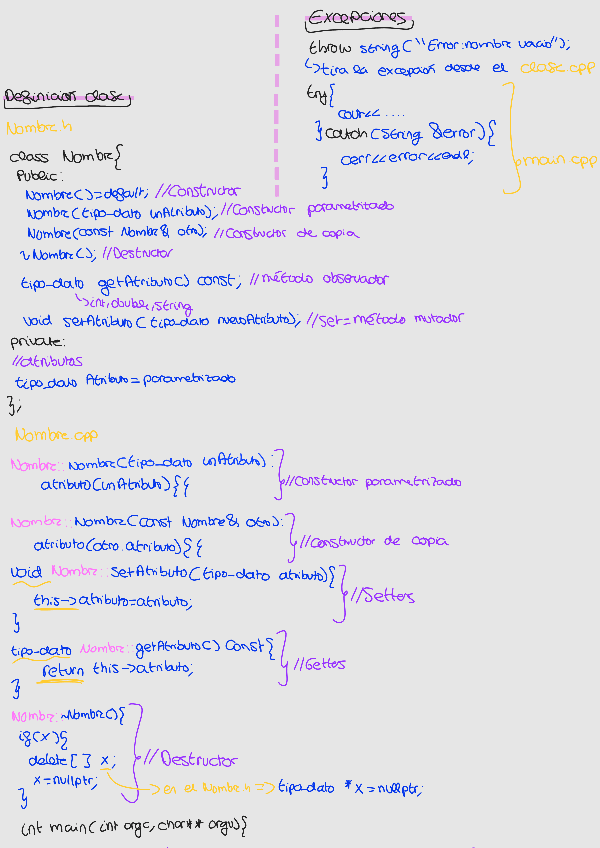 Excepciones
throw string("Error:nombre vacio");
↳tira la excepcion desde el clase.cpp
try{
cout<< ....
}catch(string &error){
cerr<<error<<endl;
}
main.cpp
Definicion clase
Nombre.h
class Nombre{
Public:
Nombre()=default; //Constructor
Nombre(tipo-dato unAtributo); //Constructor parametrizado
Nombre(const Nombre& otro); //Constructor de copia
~Nombre(); //Destructor
tipo-dato getAtributo() const; //método observador
↳int,double,string
void setAtributo(tipo-dato nuevoAtributo); //Set=método mutador
private:
//atributos
tipo_dato Atributo=parametrizado
};
Nombre.cpp
Nombre::Nombre(tipo_dato unAtributo):
atributo(unAtributo){}{ //Constructor parametrizado
Nombre::Nombre(const Nombre& otro):
atributo(otro.atributo){}{ //Constructor de copia
void Nombre::SetAtributo(tipo-dato atributo){
this->atributo=atributo; //Setters
}
tipo-dato Nombre::getAtributo() Const{
return this->atributo; //Getters
}
Nombre::~Nombre(){
if(x){
delete[] x; //Destructor
x=nullptr; → en el Nombre.h => tipo-dato *x=nullptr;
}
int main(int argc, char** argv){